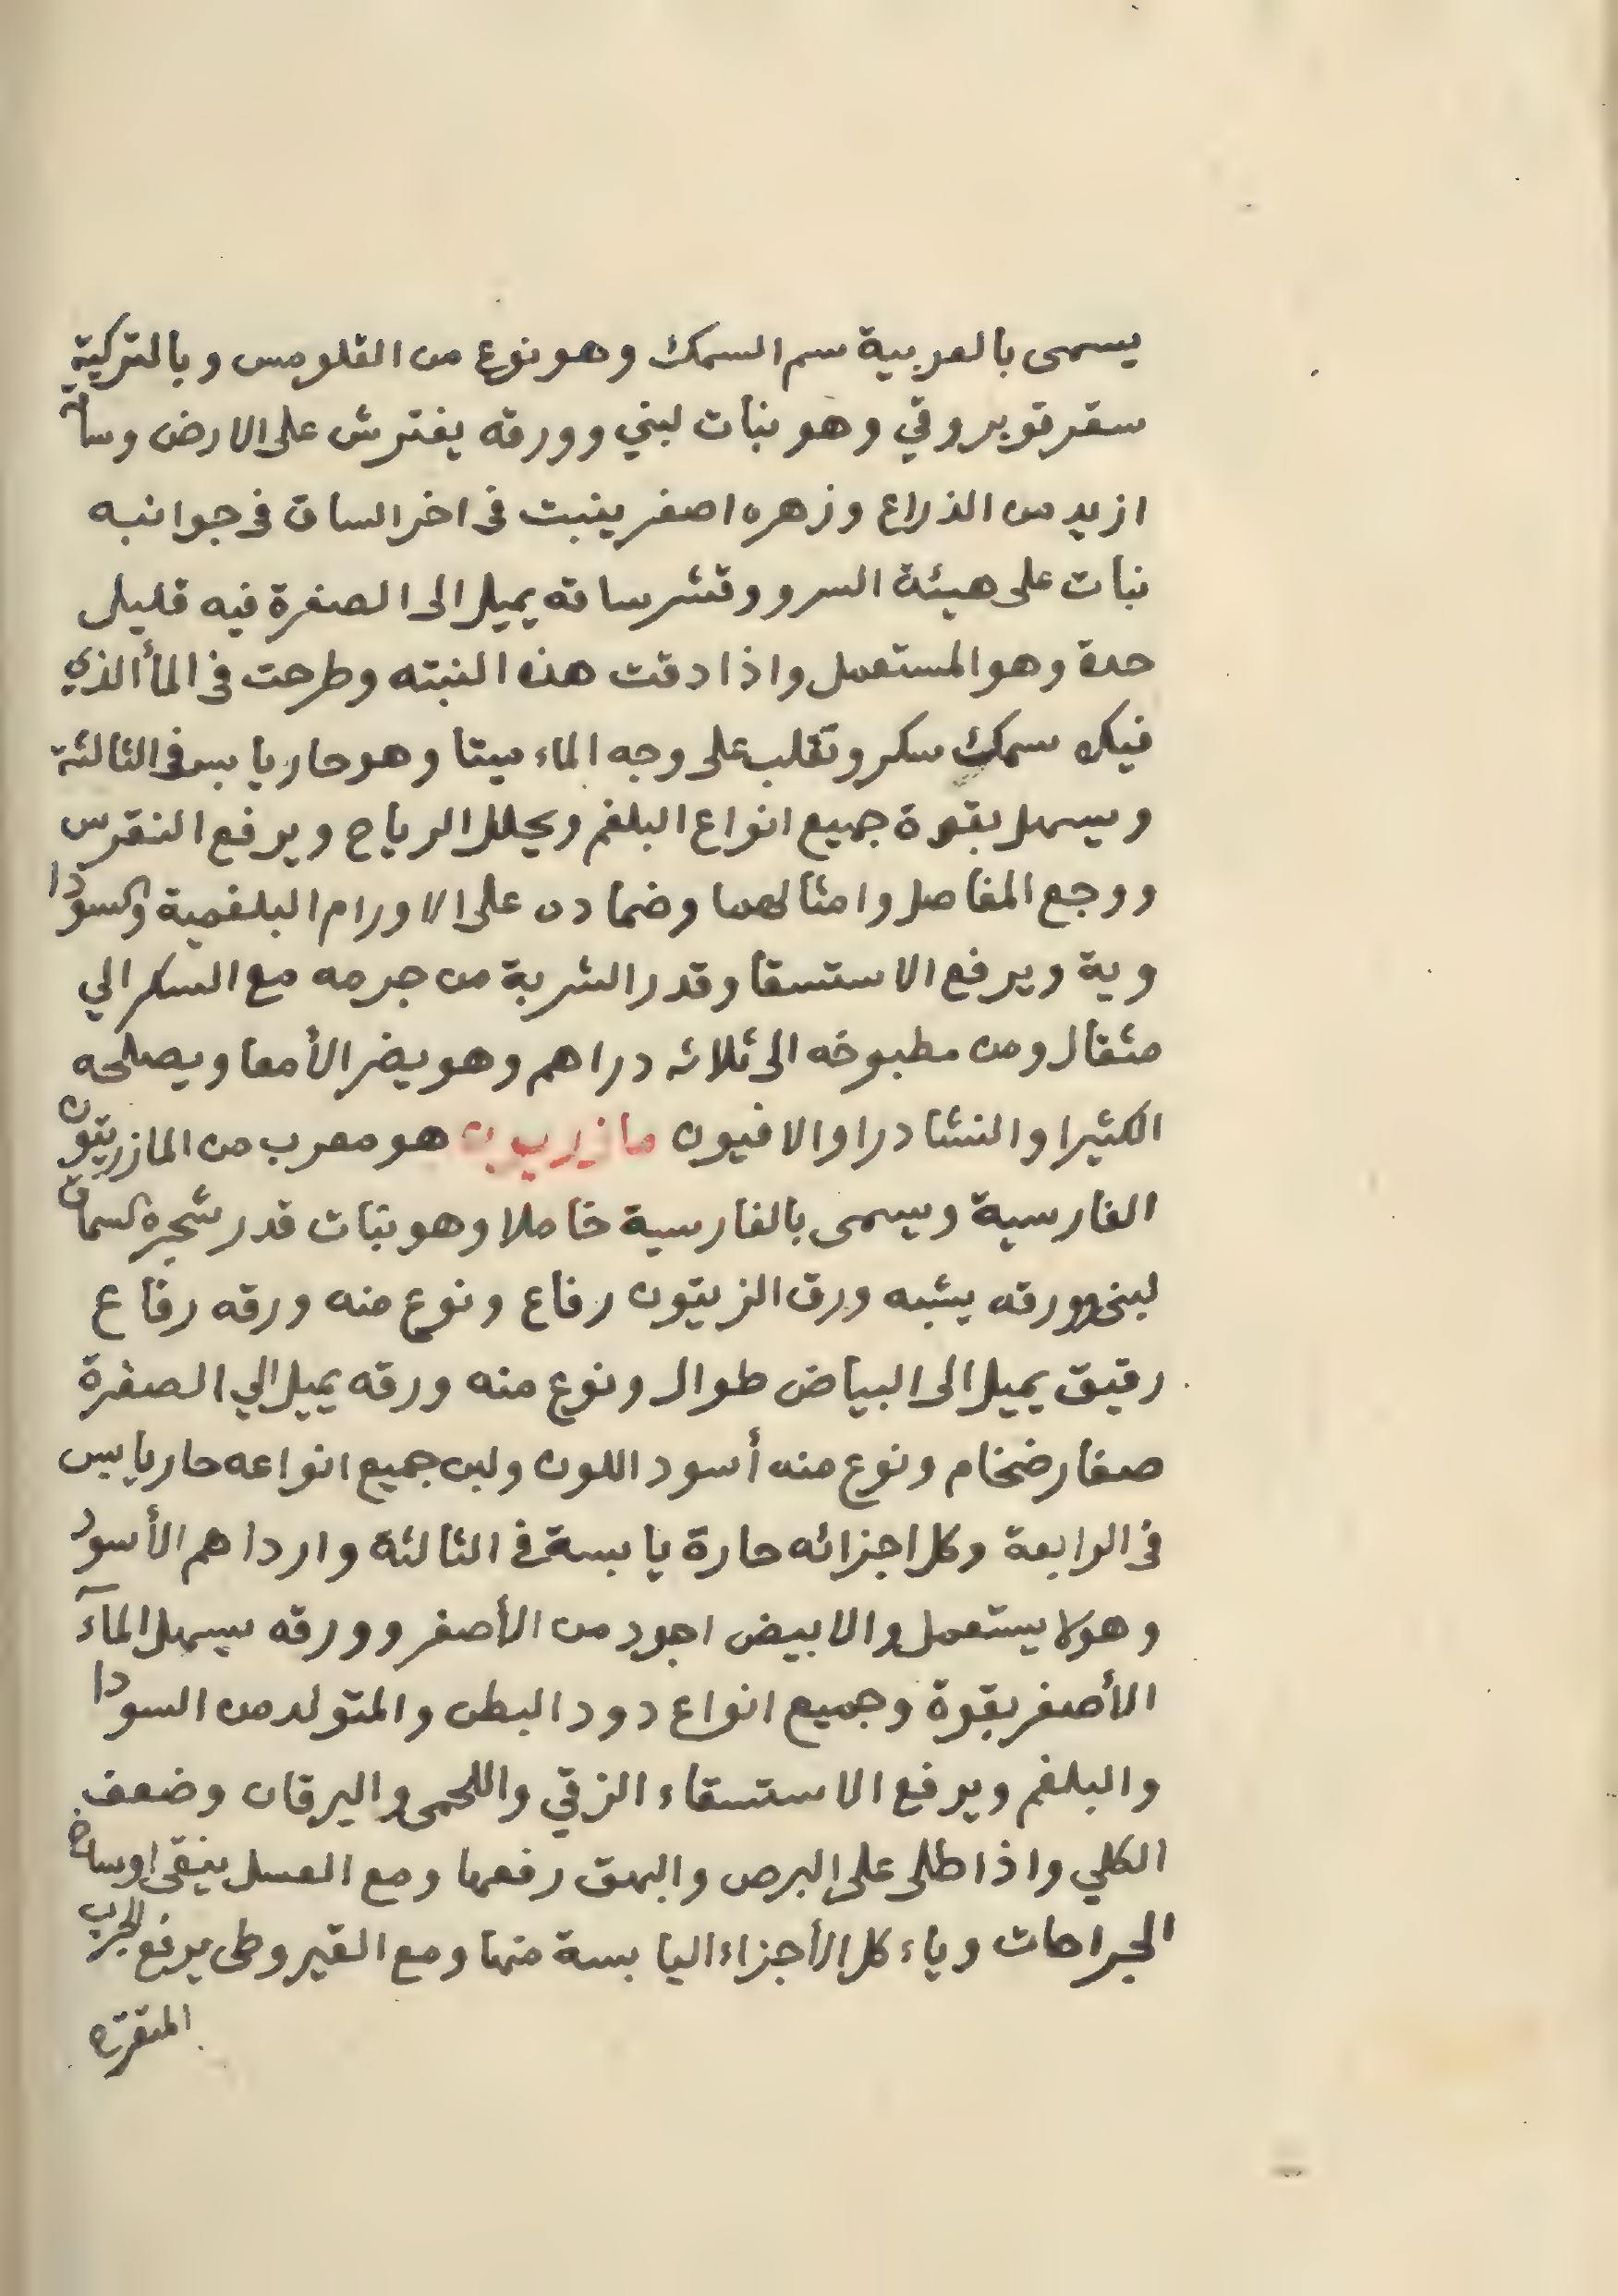 يسمى بالعربية سم السمك وهو نوع من القلومس وبالتركية
سقر قويروقي وهو نبات لبني وورقه يفترش على الارض وساق
ازيد من الذراع وزهره اصفر ينبت فى اخر الساق فى جوانبه
نبات على هيئة السرو وقشر ساقه يميل الى الصفرة فيه قليل
حدة وهو المستعمل واذا دقت هذه النبته وطرحت فى المأ الذي
فيك سمك سكر وتقلب على وجه الماء ميتا وهو حار يابس فى الثالثة
ويسهل بقوة جميع انواع البلغم ويحلل الرياح ويرفع النقرس
ووجع المفاصل وامثالهما وضماده على الاورام البلغمية والسودا
وية ويرفع الاستسقا وقدر الشربة من جرمه مع السكر الي
مثقال ومن مطبوخه الى ثلاثه دراهم وهو يضر الأمعا ويصلحه
الكثيرا والنشا درا والافيون مازريون هو معرب من المازريتون
الفارسية ويسمى بالفارسية خاملا وهو نبات قدر شجره السماق
لبنى وورقه يشبه ورق الزيتون رفاع ونوع منه ورقه رفاع
رقيق يميل الى البياض طوال ونوع منه ورقه يميل الي الصفرة
صغار ضخام ونوع منه أسود اللون ولبن جميع انواعه حار يابس
فى الرابعة وكل اجزائه حارة يابسة فى الثالثة واردا هم الأسود
وهو لا يستعمل والابيض اجود من الأصفر وورقه يسهل المآء
الأصفر بقوة وجميع انواع دود البطن والمتولد من السودا
والبلغم ويرفع الاستسقاء الزقي واللحمى واليرقان وضعف
الكلي واذا طلى على البرص والبهق رفعها ومع العسل ينقى اوساخ
الجراحات وياء كل الأجزاء اليابسة منها ومع القيروطى يرفع الجرب
المتقرّه